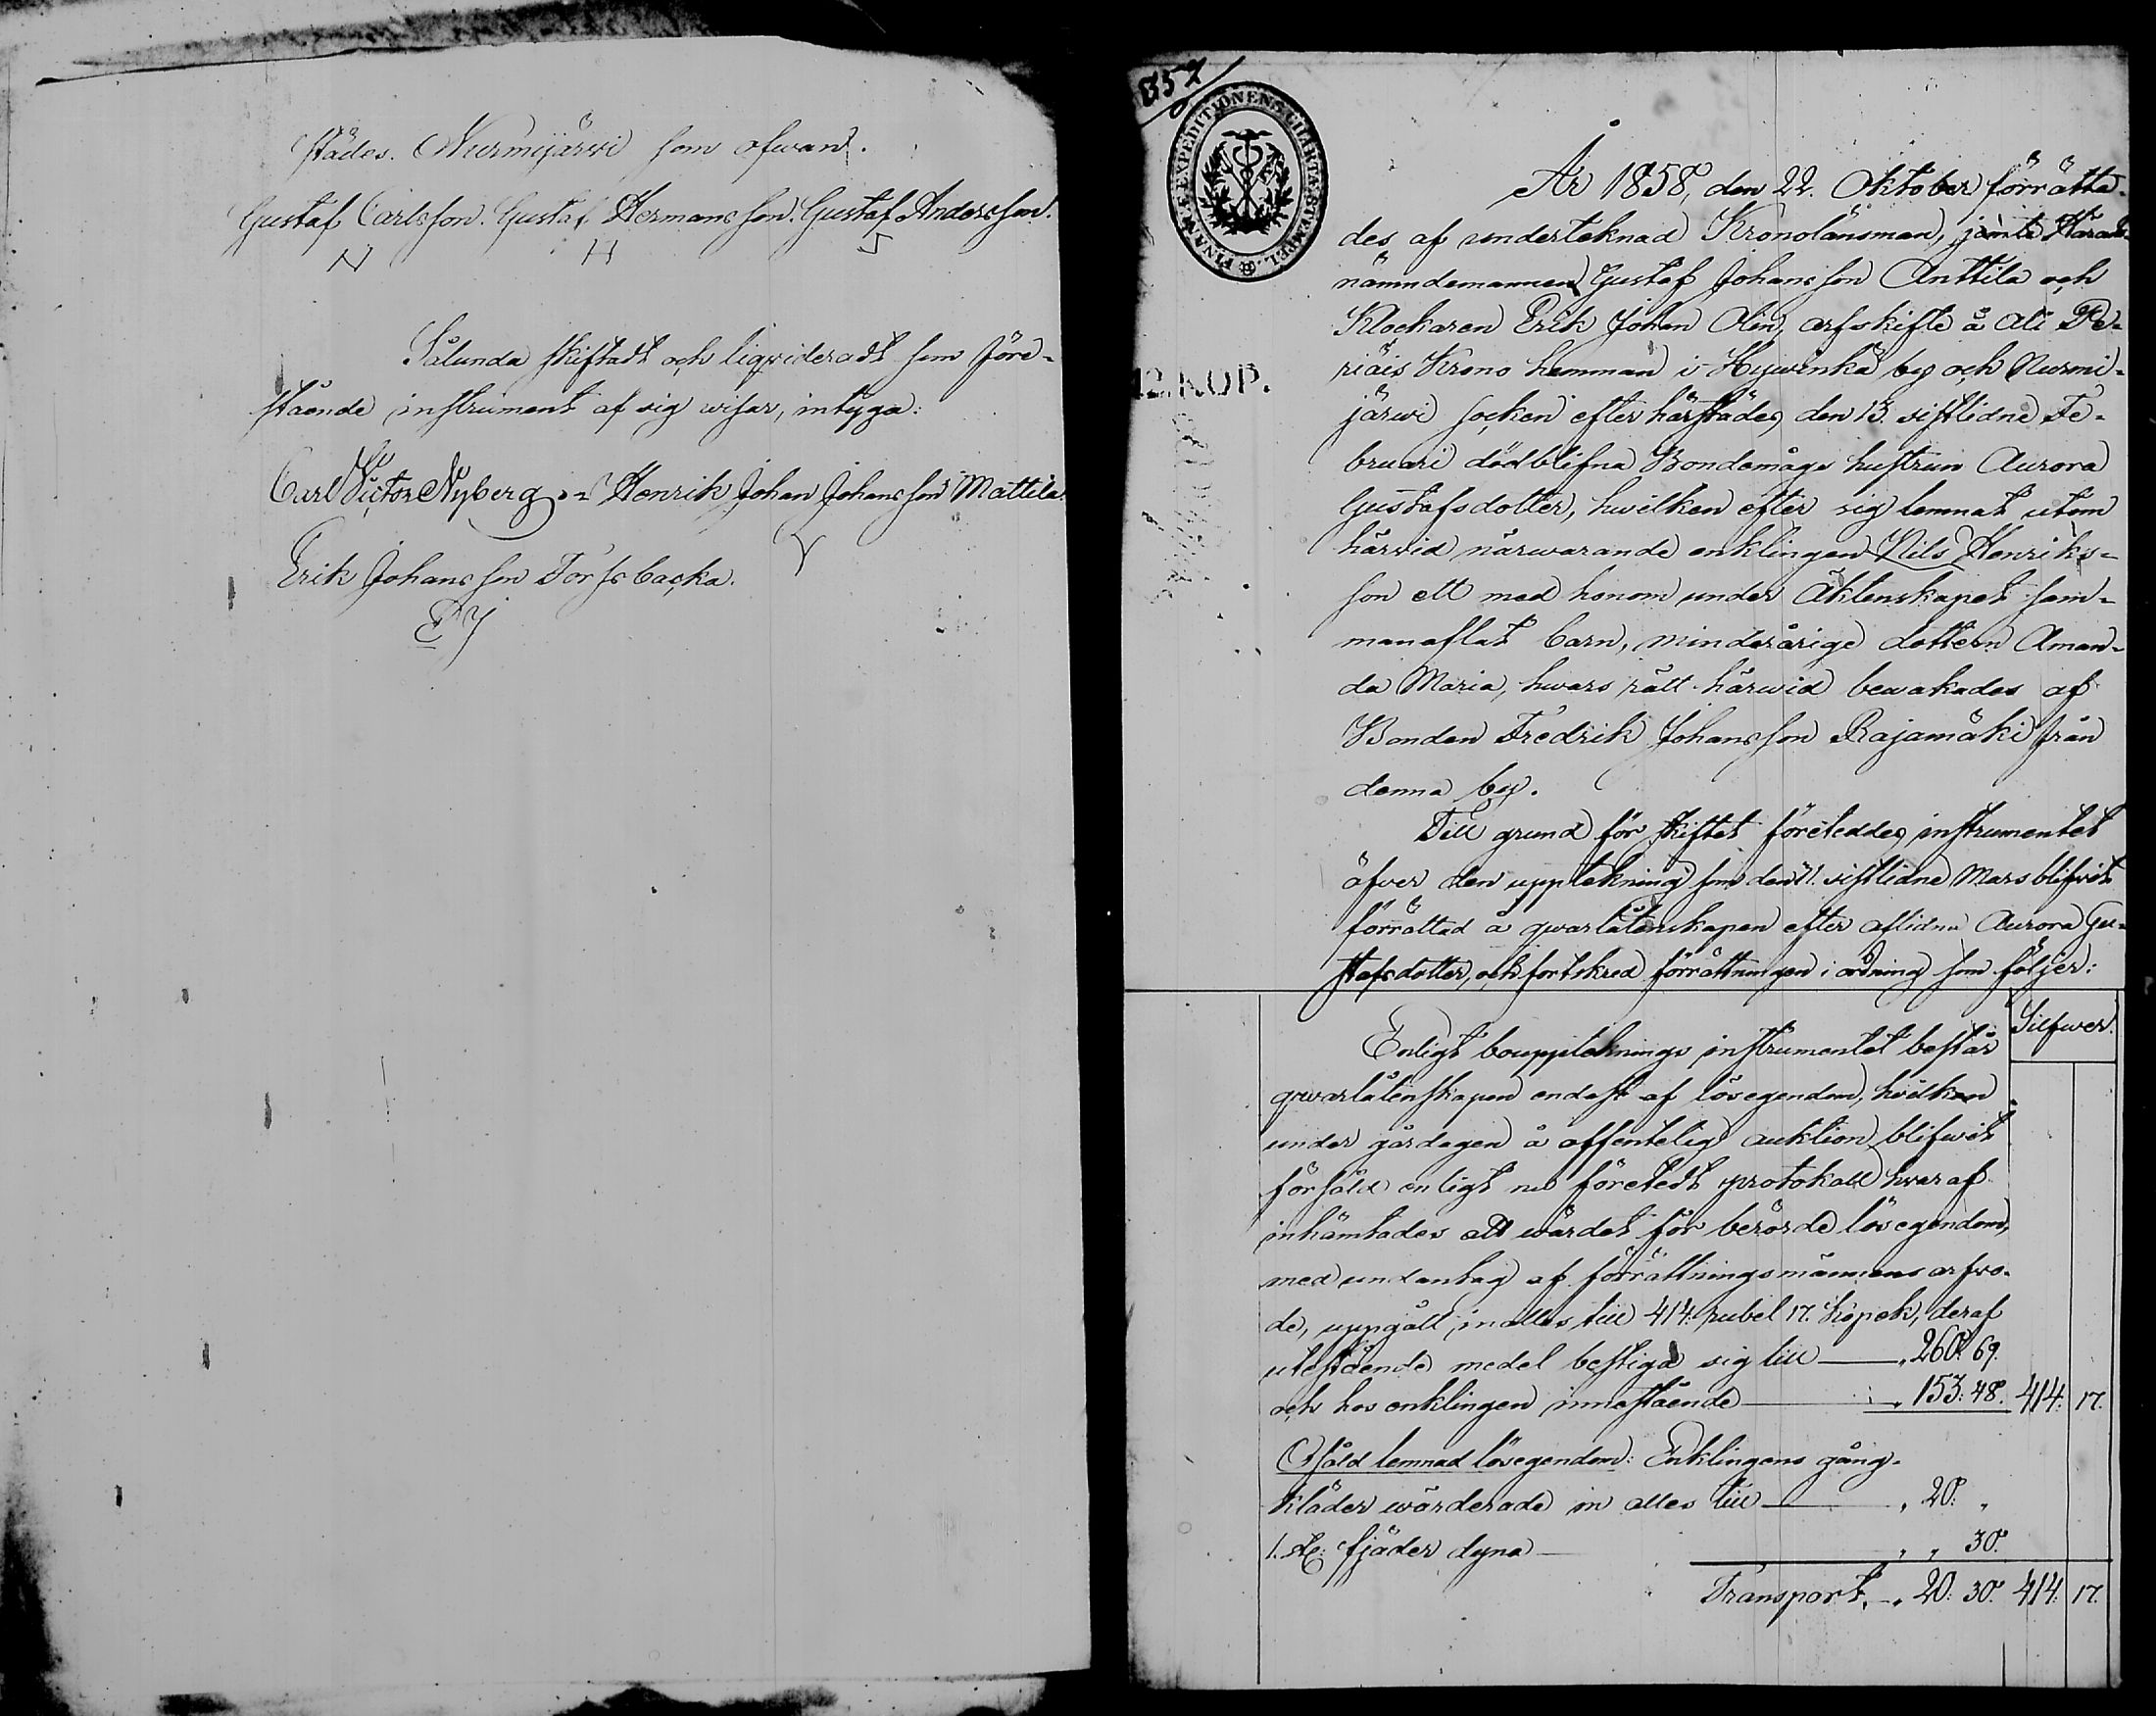 städes. Nurmijärwi som ofwan.
Gustaf Carlsson. Gustaf Hermansson. Gustaf Andersson.
Sålunda skiftadt och liqwideradt som före-
stående instrument af sig wisar, intyga:
Carl Victor Nyberg Henrik Johan Johansson Mattila
Erik Johansson Forssbacka.
EJ
857
FINANS EXPEDITIONENS CHARTÆ STEMPEL.
12. KOP.
År 1858, den 22. Oktober förrätta-
des af undertecknad Kronolänsman, jemte Härads-
nämndemannen Gustaf Johansson Anttila och
Klockaren Erik Johan Olin, arfskifte å Ali Pe-
riäis Krono hemman i Hywinkä by och Nurmi-
järwi socken efter härstädes den 13. sistlidne Fe-
bruari dödblifna Bondemågs hustrun Aurora
Gustafsdotter, hwilken efter sig lemnat utom
härwid närwarande enklingen Nils Henriks-
son ett med honom under äktenskapet sam-
manaflat barn, minderårige dottern Aman-
da Maria, hwars rätt härwid bewakades af
Bonden Fredrik Johansson Rajamäki från
denna by.
Till grund för skiftet företeddes instrumentet
öfver den uppteckning som den 11. sistlidne Mars blifwit
förrättad å qwarlåtenskapen efter aflidna Aurora Gu-
stafsdotter, och fortskred förrättningen i ordning som följer:
Silfwer.
Enligt bouppteknings instrumentet består
qwarlåtenskapen endast af lösegendom, hwilken
under gårdagen å offentelig auktion blifwit
försåld enligt nu företedt protokoll hwaraf
inhämtades att wärdet för berörde lösegendom,
med undantag af förrättningsmännens arfwo-
de, uppgått in alles till 414. rubel 17. kopek, deraf
utestående medel bestiga sig till " 260: 69.
och hos enklingen innestående " 153: 48. 414: 17.
Osåld lemnad lösegendom: Enklingens gång-
kläder wärderade in alles till " 20: "
1. st: fjäder dyna " " 30.
Transport, " 20: 30. 414: 17.